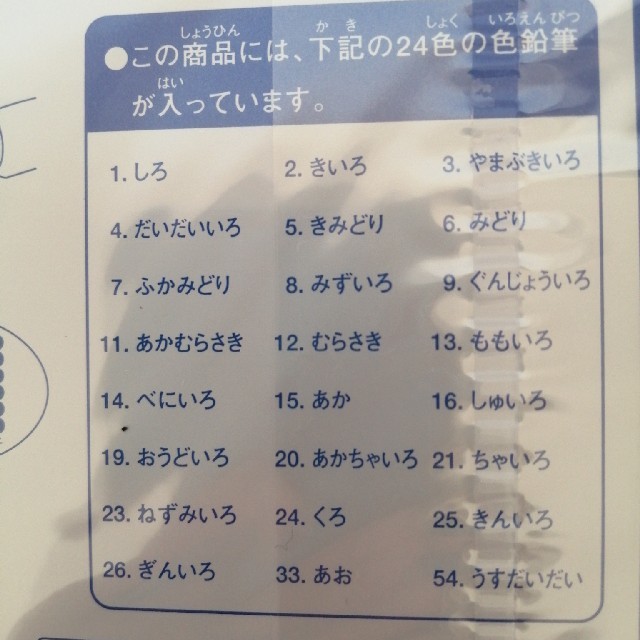 ●この商品には、下記の24色の色鉛筆
が入っています。
1. しろ 2. きいろ 3. やまぶきいろ
4. だいだいいろ 5. きみどり 6. みどり
7. ふかみどり 8. みずいろ 9. ぐんじょういろ
11. あかむらさき 12. むらさき 13. ももいろ
14. べにいろ 15. あか 16. しゅいろ
19. おうどいろ 20. あかちゃいろ 21. ちゃいろ
23. ねずみいろ 24. くろ 25. きんいろ
26. ぎんいろ 33. あお 54. うすだいだい